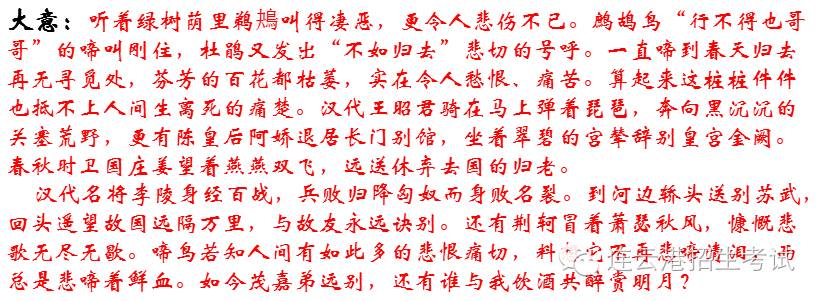 大意：听着绿树荫里鹈鴂叫得凄恶，更令人悲伤不已。鹧鸪鸟“行不得也哥
哥”的啼叫刚住，杜鹃又发出“不如归去”悲切的号呼。一直啼到春天归去
再无寻觅处，芬芳的百花都枯萎，实在令人愁恨、痛苦。算起来这桩桩件件
也抵不上人间生离死的痛楚。汉代王昭君骑在马上弹着琵琶，奔向黑沉沉的
关塞荒野，更有陈皇后阿娇退居长门别馆，坐着翠碧的宫辇辞别皇宫金阙。
春秋时卫国庄姜望着燕燕双飞，远送休弃去国的归老。
汉代名将李陵身经百战，兵败归降匈奴而身败名裂。到河边轿头送别苏武，
回头遥望故国远隔万里，与故友永远诀别。还有荆轲冒着萧瑟秋风，慷慨悲
歌无尽无歇。啼鸟若知人间有如此多的悲恨痛切，料它不再悲啼清泪，而
总是悲啼着鲜血。如今茂嘉弟远别，还有谁与我饮酒共醉赏明月？
连云港招生考试